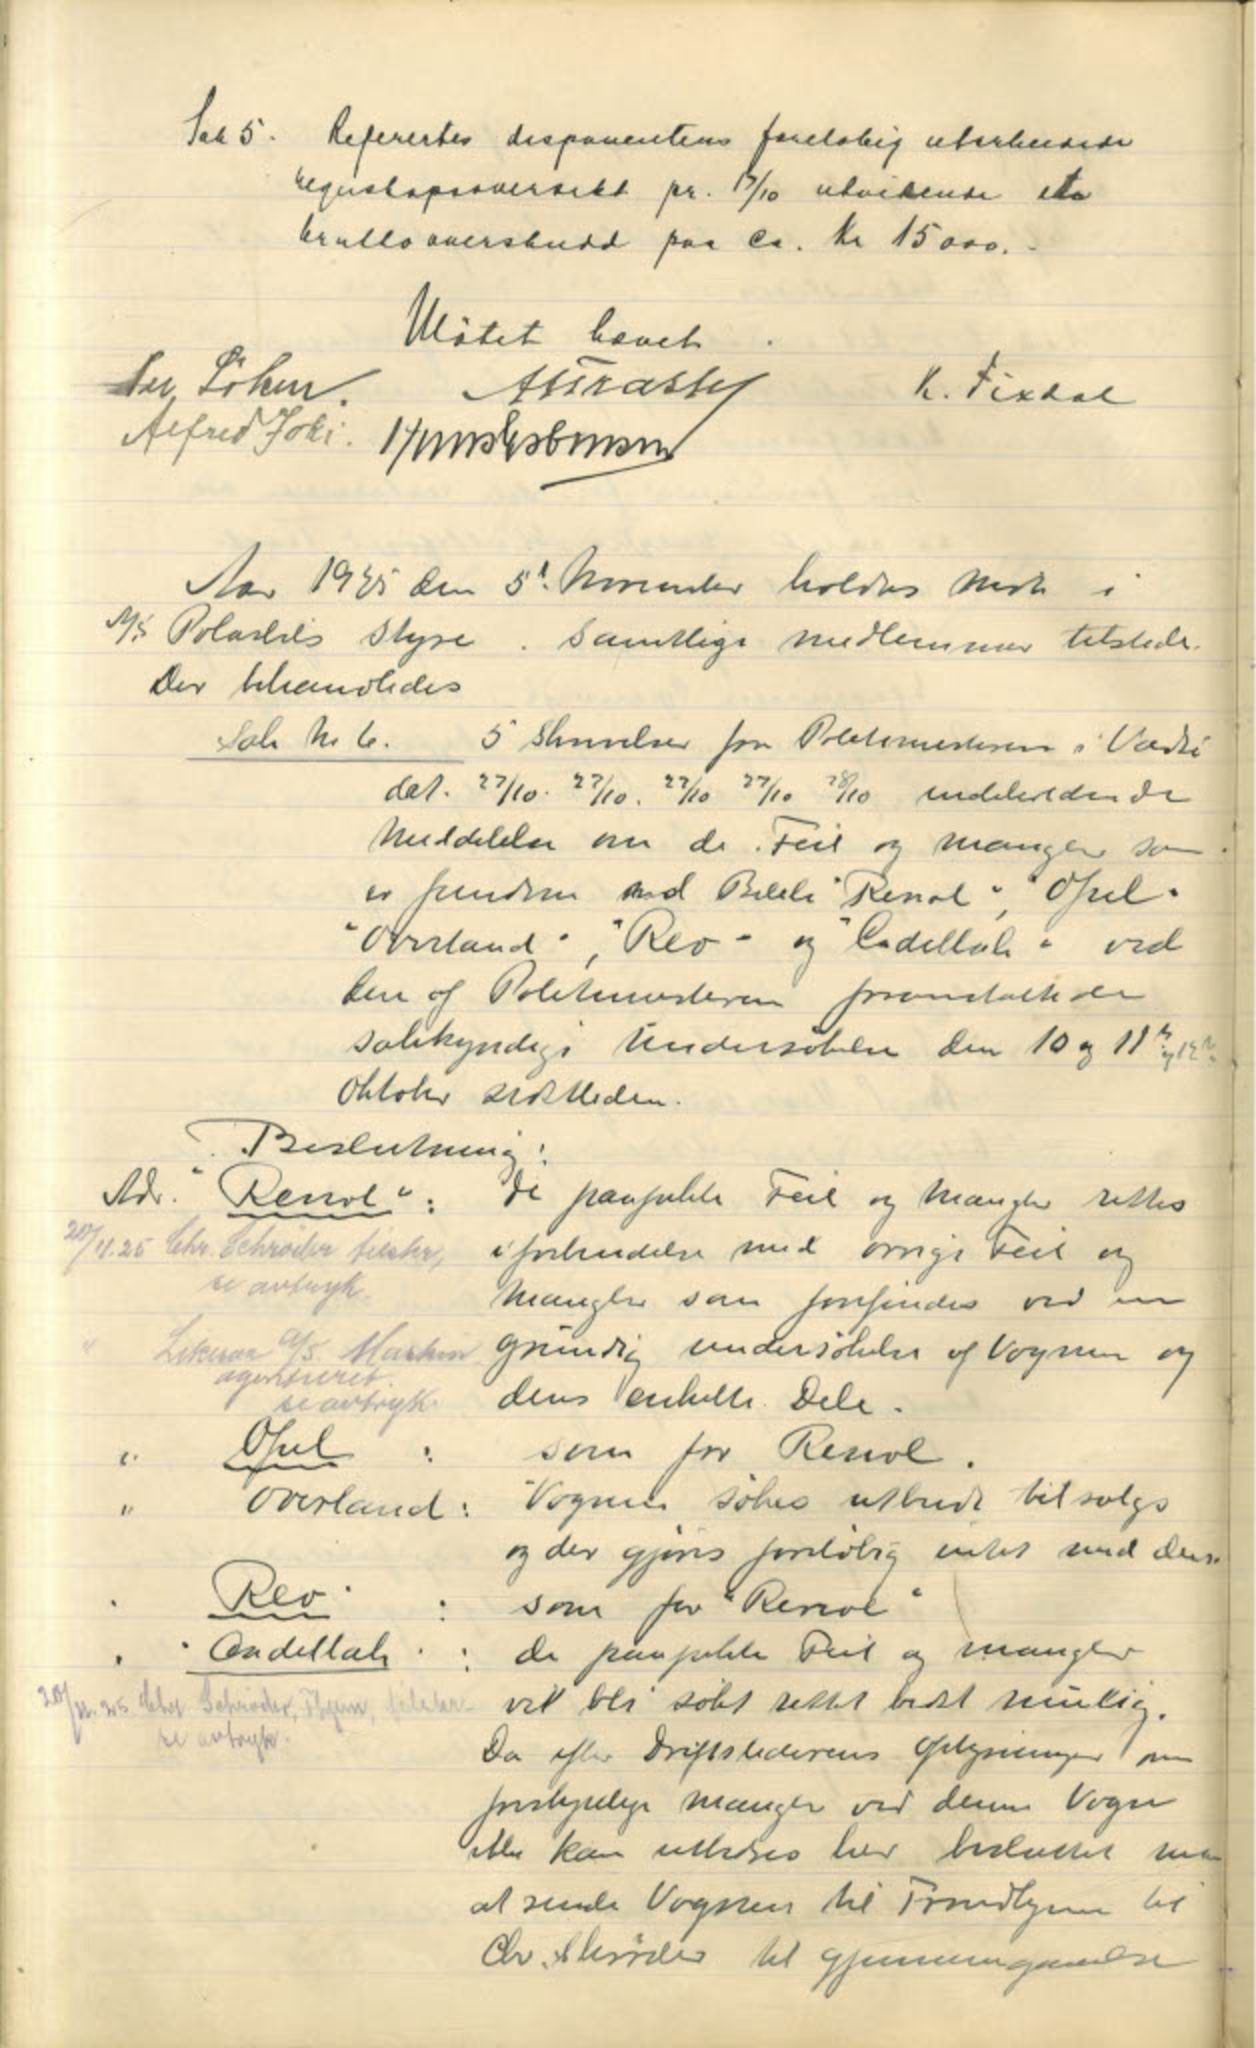 Sak 5. Refereertes disponentens foreløbig utarbeidede
regnskapsoversikt pr. 17/10 utvisende et
bruttooverskudd paa ca. Kr 15000.-
Møtet hævet.
K. Fixdal
Alfred Joki.
Aar 1925 den 5t November holdtes møte i
A/S Polarbils styre. Samtlige medlemmer tilstede.
Der behandledes
Sak No 6. 5 Skrivelser fra Politimesteren i Vadsö
dat. 27/10. 27/10. 27/10 27/10 28/10 indeholdende
Meddelelse om de Feil og mangler som
er funden ved Bilene "Renol", "Opel"
"Overland", "Reo" og "Cadillak" ved
den af Politimesteren foranstaltede
sakkyndige Undersökelse den 10 og 11te og 12te
Oktober sidstleden.
Beslutning:
Adr. "Renol": De paapekte Feil og Mangler rettes
20/11.25 Chr. Schrøder tilskr, i forbindelse med övrige Feil og
se avtryk. Mangler som forefindes ved en
" Likesaa A/S Maskin grundig undersökelse af Vognen og
agenturet. dens enkelte Dele.
se avtryk
" Opel : som for Renol.
" Overland : Vognen sökes utbudt til salgs
og der gjøres foreløbig intet med den.
" Reo : som for "Renol"
" Cadillak : de paapekte Feil og mangler
20/11.25 Chr Schrøder, Thjem, tilskr. vil bli søkt rettet bedst mulig.
se avtryk. Da efter Driftslederens Oplysninger om
forskjelige mangler ved denne Vogn
ikke kan utbedres her besluttet man
at sende Vognen til Trondhjem til
Chr. Schrøder til gjennemgaaelse